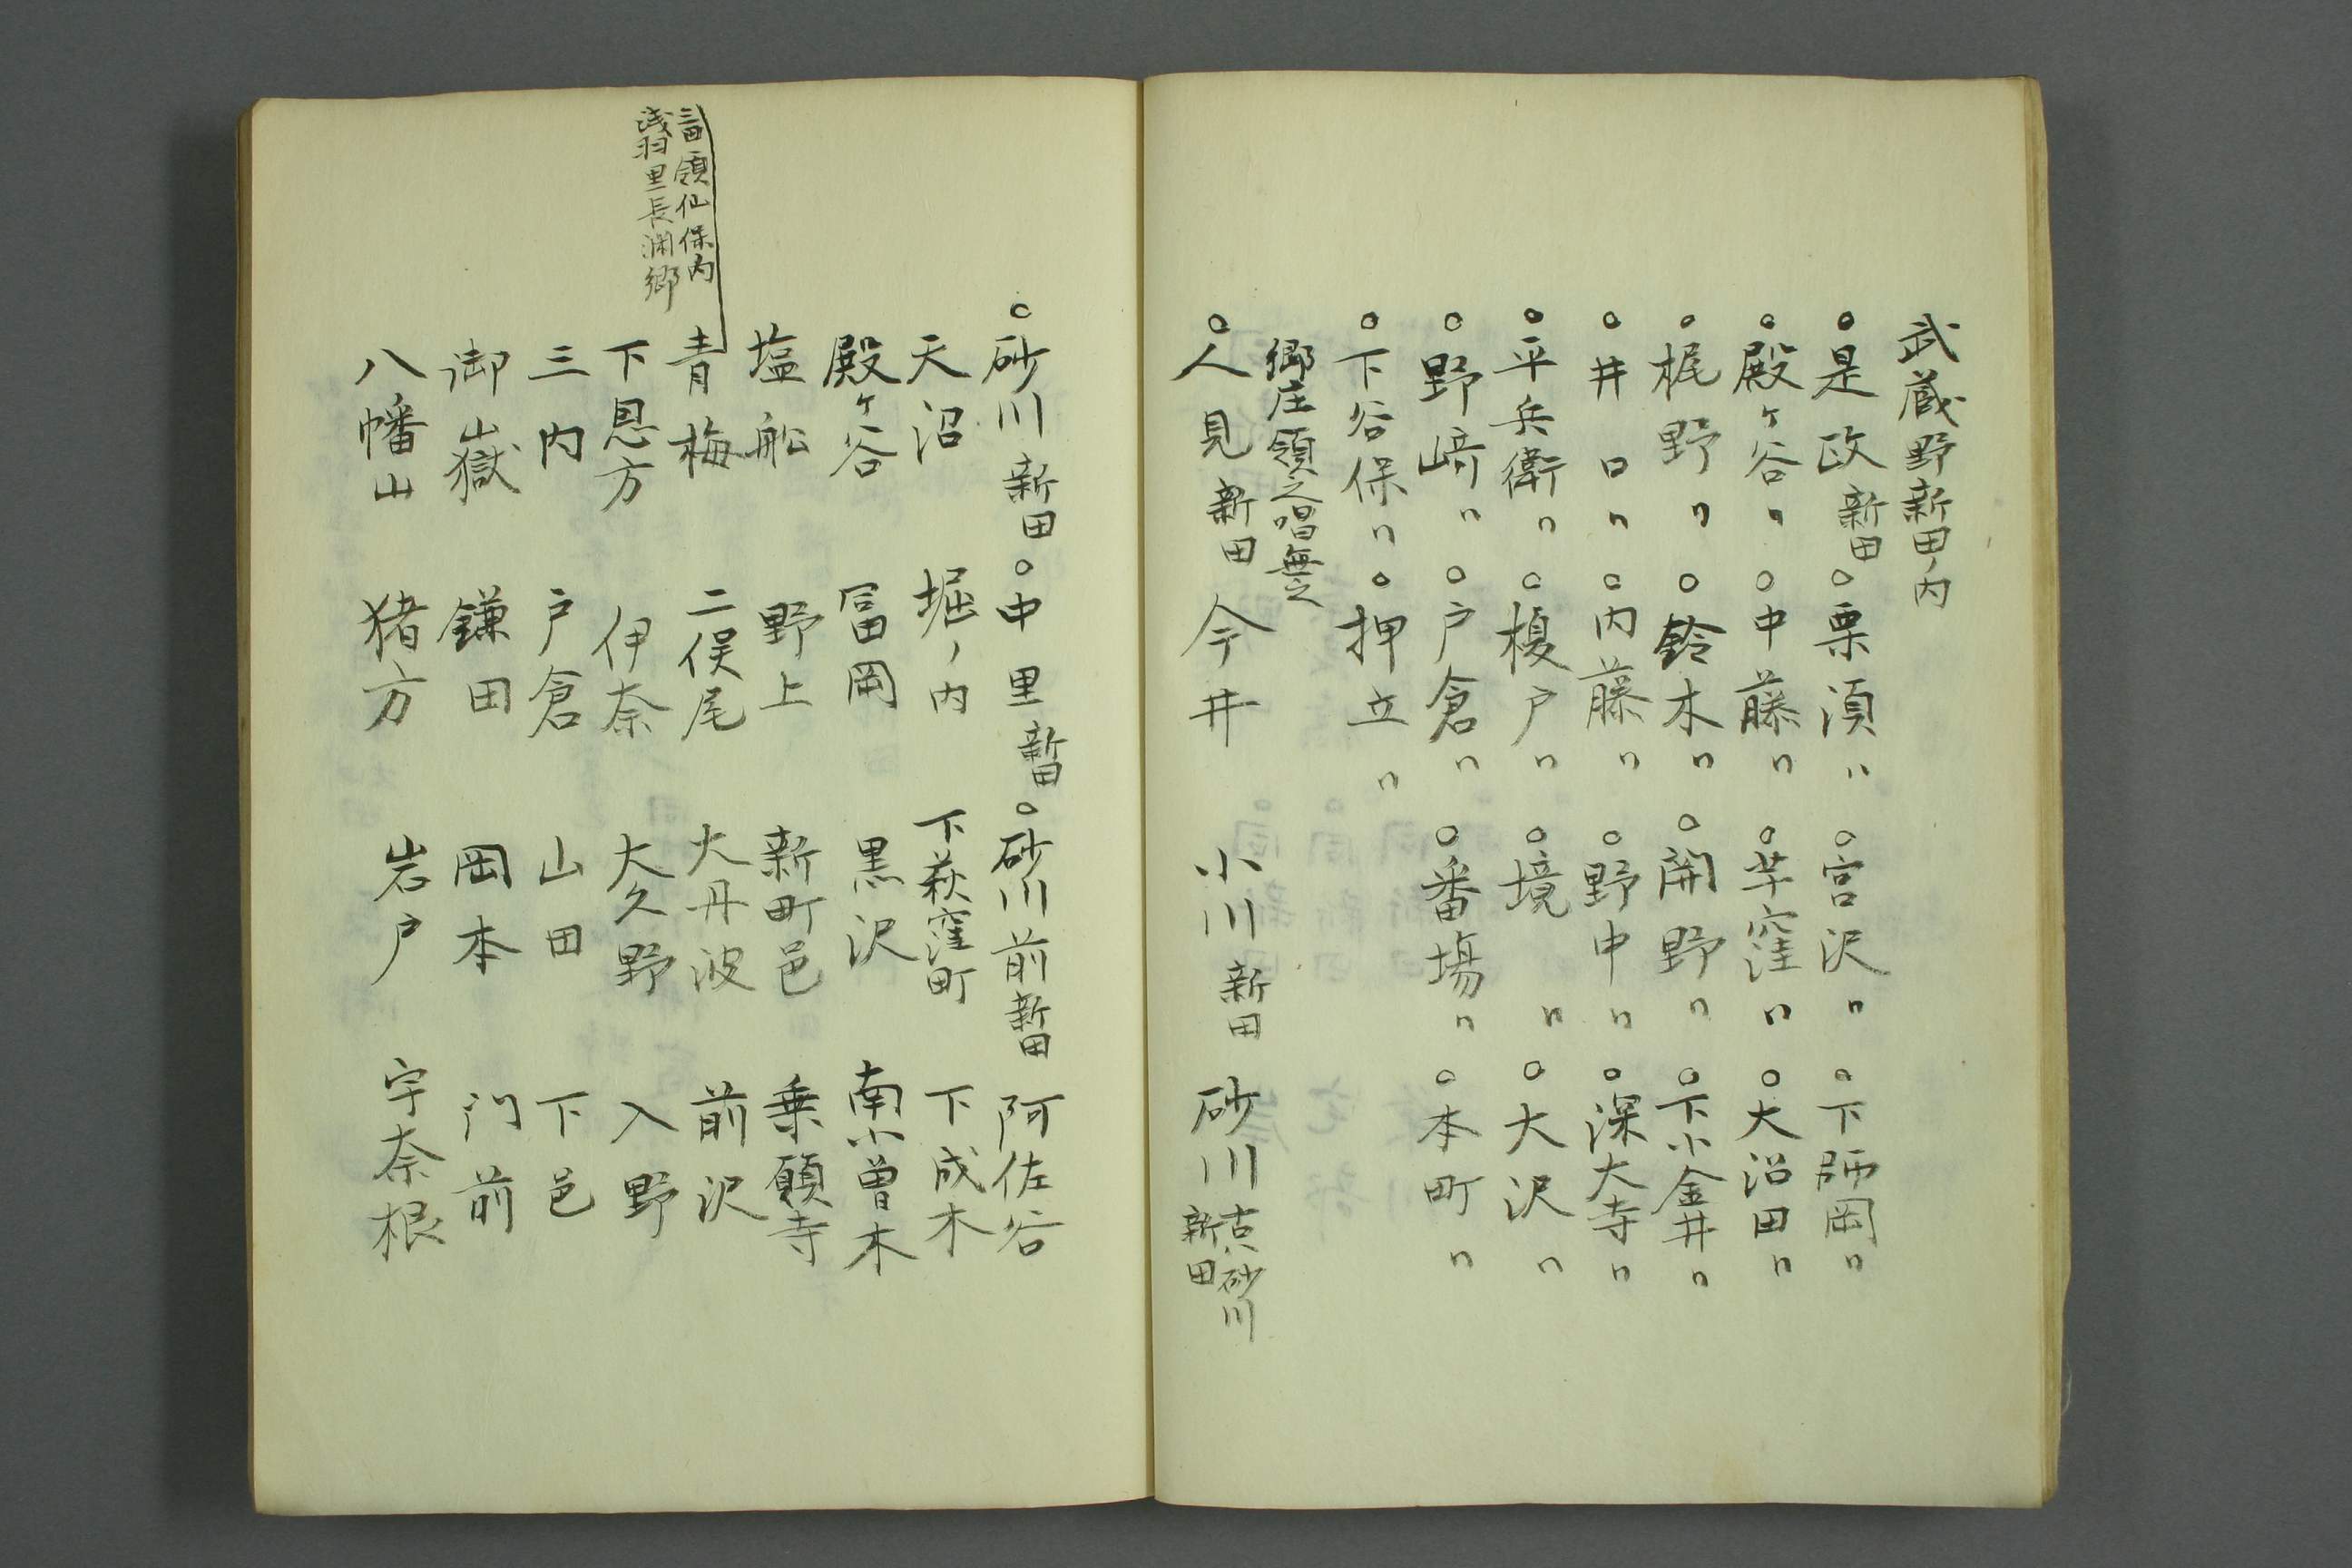 武蔵野新田ノ内
○是政新田 ○栗須〃 ○宮沢〃 ○下師岡〃
○殿ヶ谷〃 ○中藤〃 ○芋窪〃 ○大沼田〃
○梶野〃 ○鈴木〃 ○関野〃 ○下小金井〃
○井口〃 ○内藤〃 ○野中〃 ○深大寺〃
○平兵衛〃 ○榎戸〃 ○境〃 ○大沢〃
○野崎〃 ○戸倉〃 ○番場〃 ○本町〃
○下谷保〃 ○押立〃
郷庄領之唱無之
○人見新田 今井 小川新田 砂川古ハ砂川新田
○砂川新田 ○中里新田 ○砂川前新田 阿佐谷
天沼 堀ノ内 下荻窪町 下成木
殿ヶ谷 冨岡 黒沢 南小曽木
塩船 野上 新町邑 乗願寺
三田領仙保内
浅羽里長渕郷
青梅 二俣尾 大丹波 前沢
下恩方 伊奈 大久野 入野
三内 戸倉 山田 下邑
御嶽 鎌田 岡本 門前
八幡山 猪方 岩戸 宇奈根